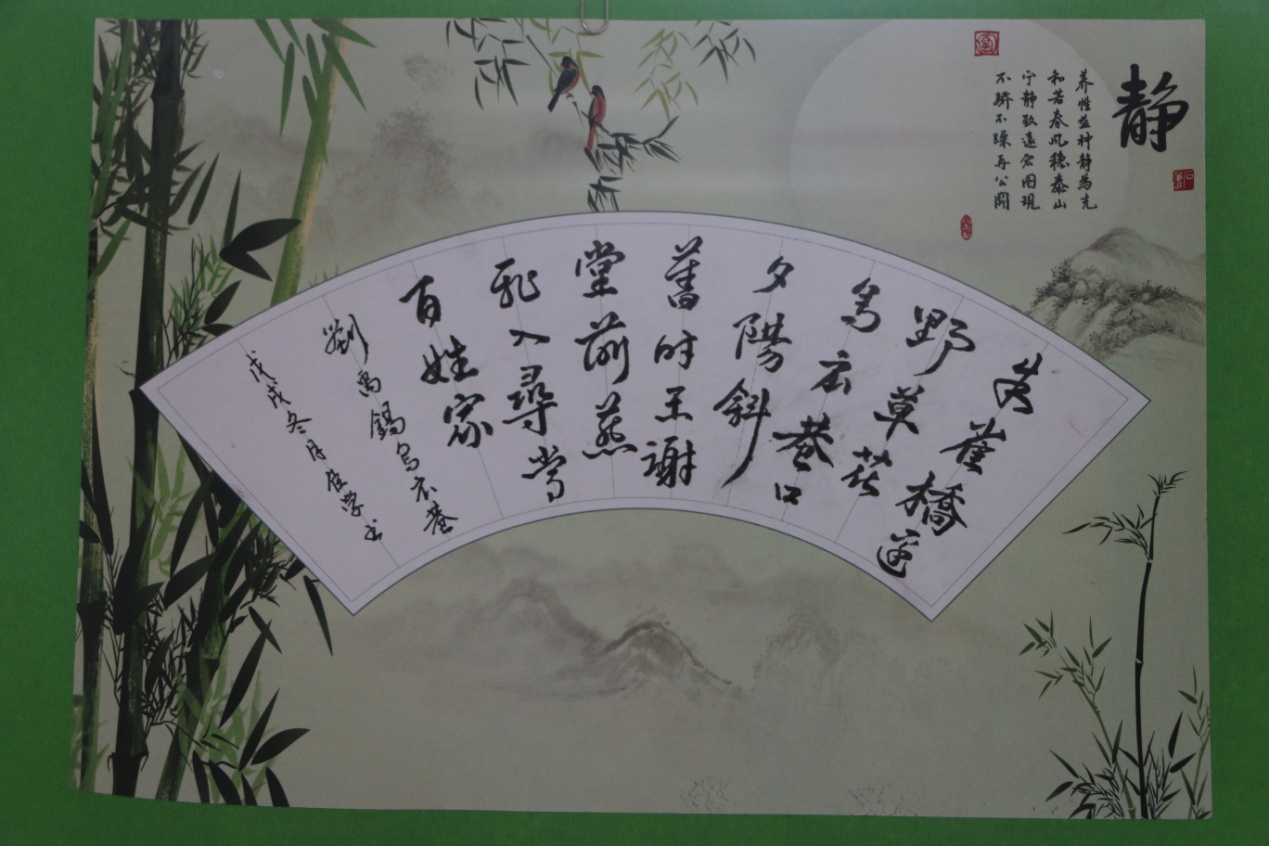 静
养性益神静為先
和若春风穩泰山
宁静致遠宏图現
不骄不躁再公
朱雀橋邊
野草花
烏衣巷口
夕陽斜
舊时王謝
堂前燕
飛入尋常
百姓家
劉禹錫烏衣巷
戊戌冬月 学书